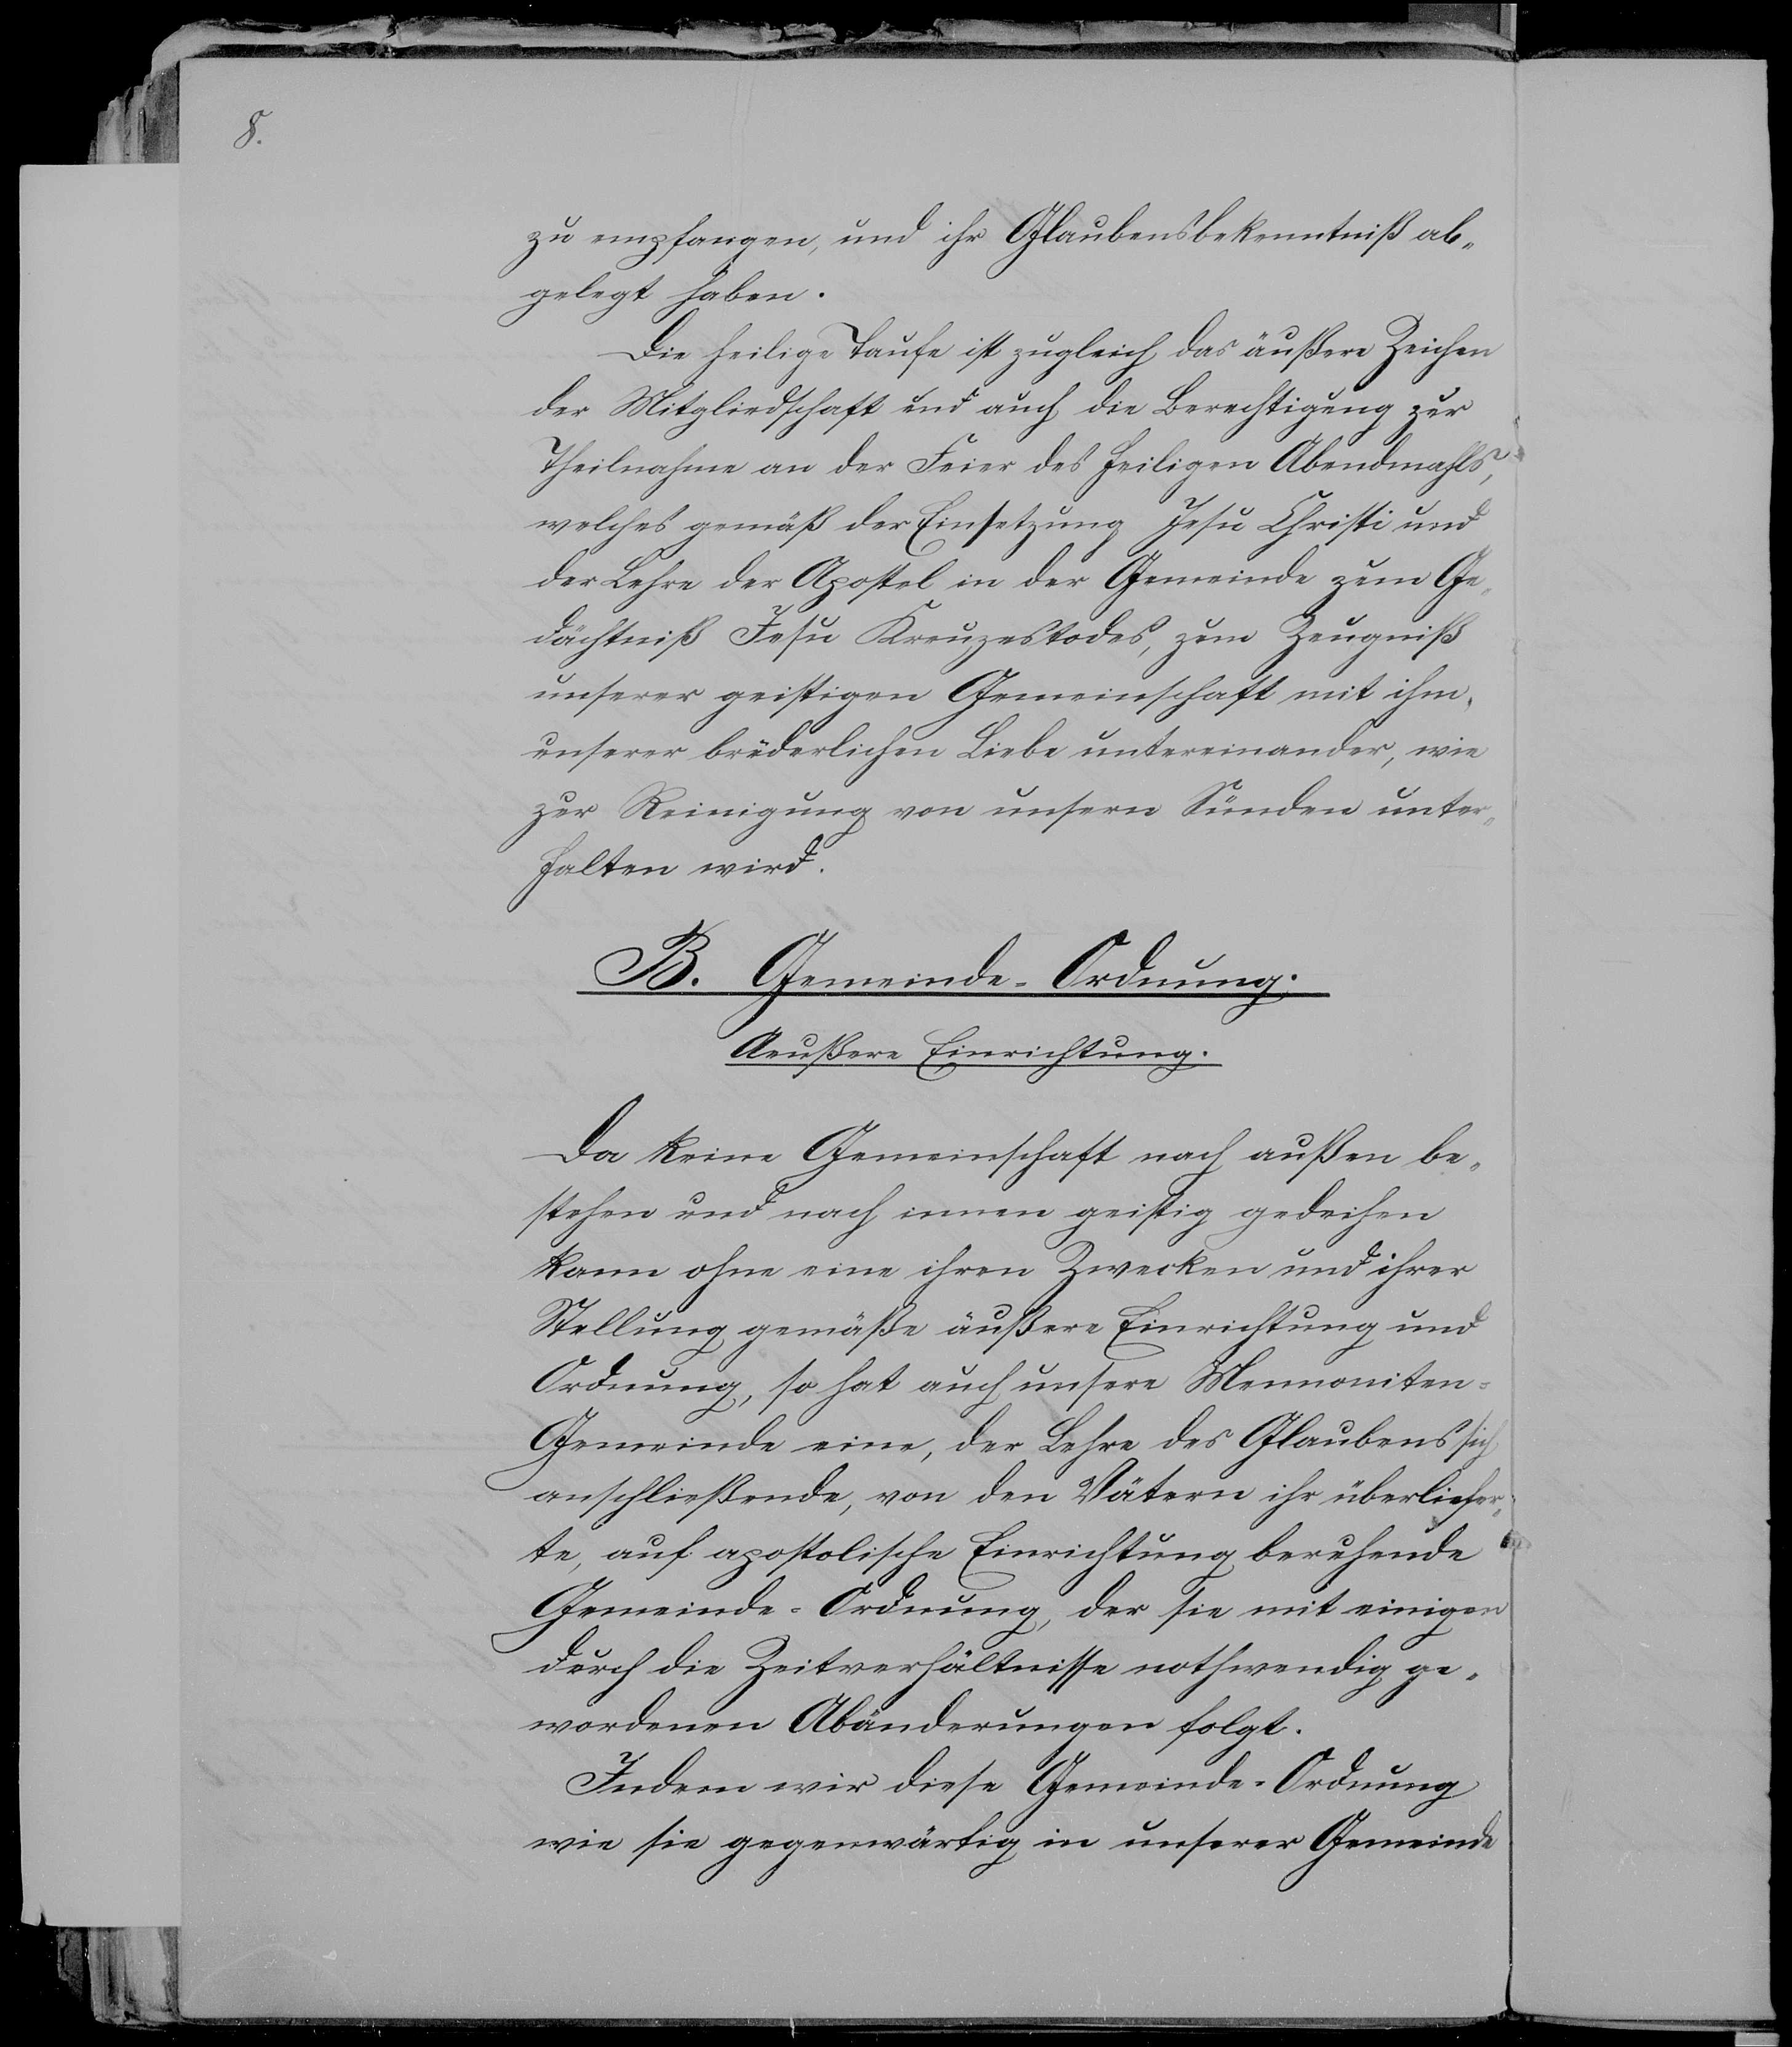 8.
zu empfangen, und ihr Glaubensbekenntniß ab-
gelegt haben.
Die heilige Taufe ist zugleich das äußere Zeichen
der Mitgliedschaft und auch die Berechtigung zur
Theilnahme an der Feier des heiligen Abendmahls,
welches gemäß der Einsetzung Jesu Christi und
der Lehre der Apostel in der Gemeinde zum Ge-
dächtniß Jesu Kreuzestodes, zum Zeugniß
unserer geistigen Gemeinschaft mit ihm,
unserer brüderlichen Liebe untereinander, wie
zur Reinigung von unsern Sünden unter-
halten wird.
B. Gemeinde-Ordnung.
Aeußere Einrichtung.
Da keine Gemeinschaft nach außen be-
stehen und nach innen geistig gedeihen
kann ohne eine ihren Zwecken und ihrer
Stellung gemäße äußere Einrichtung und
Ordnung, so hat auch unsere Mennoniten-
Gemeinde eine, der Lehre des Glaubens sich
anschließende, von den Vätern ihr überliefer-
te, auf apostolische Einrichtung beruhende
Gemeinde-Ordnung, der sie mit einigen
durch die Zeitverhältnisse nothwendig ge-
wordenen Abänderungen folgt.
Indem wir diese Gemeinde-Ordnung
wie sie gegenwärtig in unserer Gemeinde